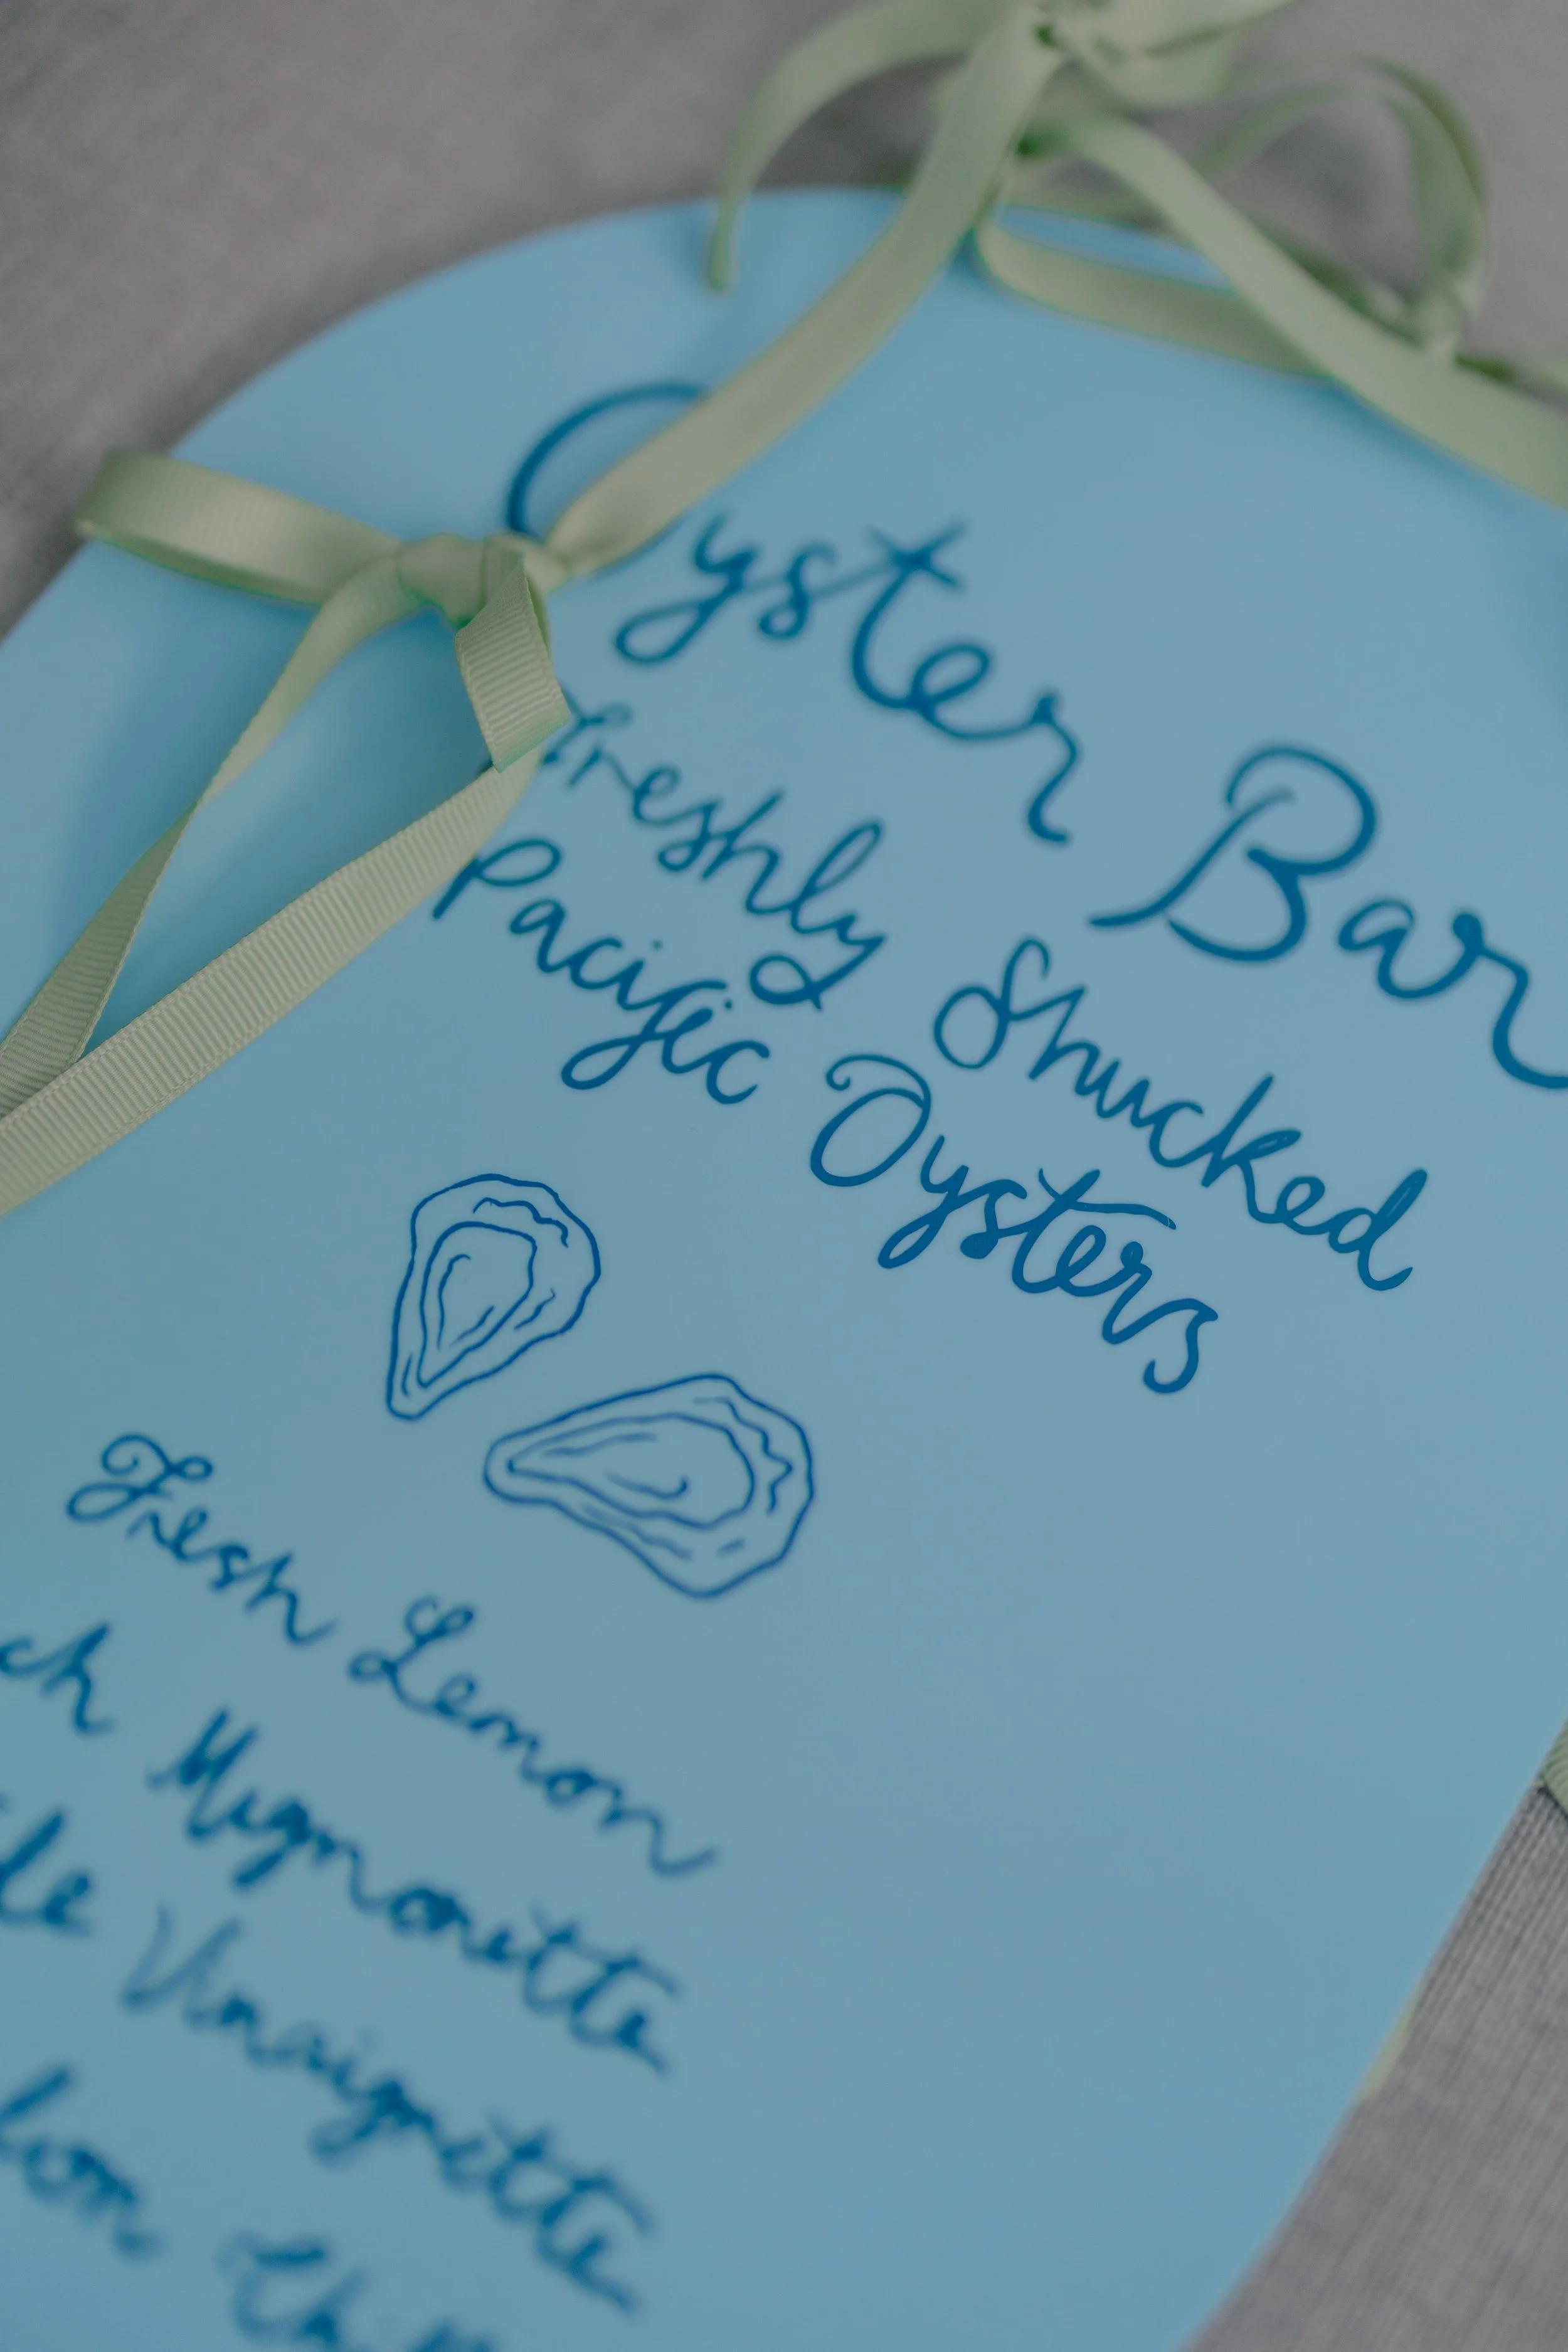 Oyster Bar
Freshly Shucked
Pacific Oysters
Fresh Lemon
Mignonette
Vinaigrette